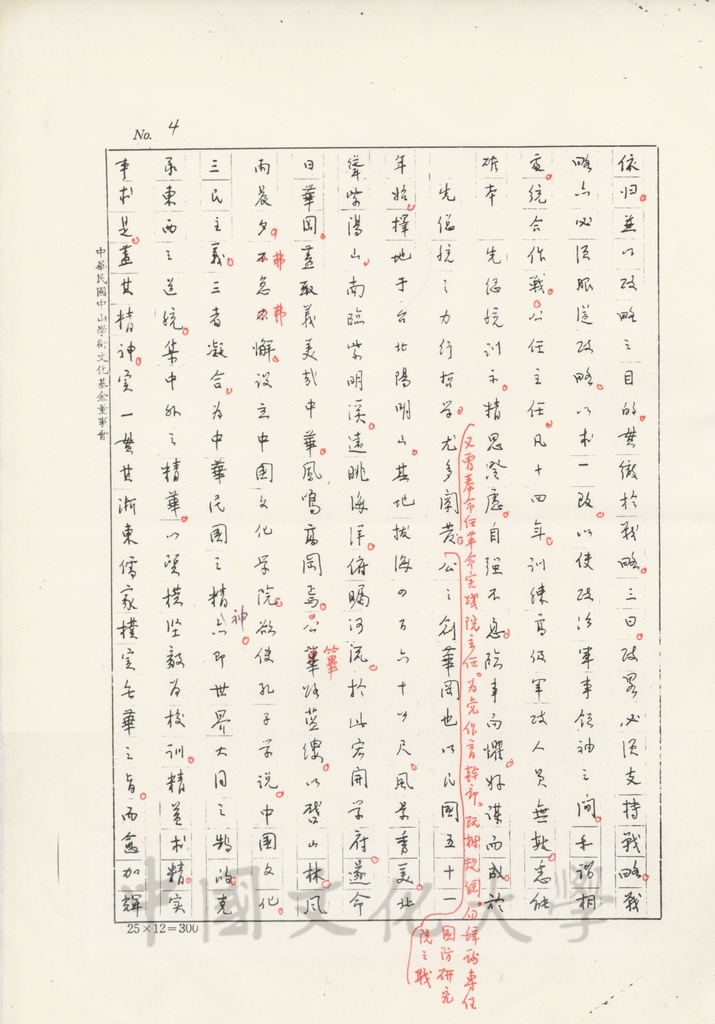 No. 4
依归。並以政略之目的貫徹於戰略。三曰。政略必須支持戰略。戰
略亦必須服從政略。以求一致。以使政治軍事領袖之間。和谐相
處。統合作戰。公任主任。凡十四年。訓練高级軍政人员無數。悉能
研本 先總統訓示。精思澄慮。自强不息。臨事而懼。好謀而成。於
先總統之力行哲学。尤多闡發。公之創華岡也。以民國五十一
又曾奉命任革命实践院主任。为党作育幹部。
國防研究
院之職
年始。擇地于台北陽明山。其地拔海四百六十公尺。風景秀美。北
聳紫陽山。南臨紫明溪。遠眺海洋。俯瞩河流。於此宏開学府。遂命
曰華岡。蓋取義美哉中華。鳳鳴高岡焉。公篳路蓝缕。以啓山林。風
雨晨夕。弗怠弗懈。設立中國文化学院。欲使孔子学說。中國文化。
三民主義。三者凝合。为中華民國之精神。亦即世界大同之鹄的。克
承東西之道統。集中外之精華。以質樸坚毅为校訓。精益求精。实
事求是。蓋其精神。实一貫其浙東儒家樸实无華之旨。而愈加輝
25×12=300
中華民國中山學術文化基金董事會
中國文化大學